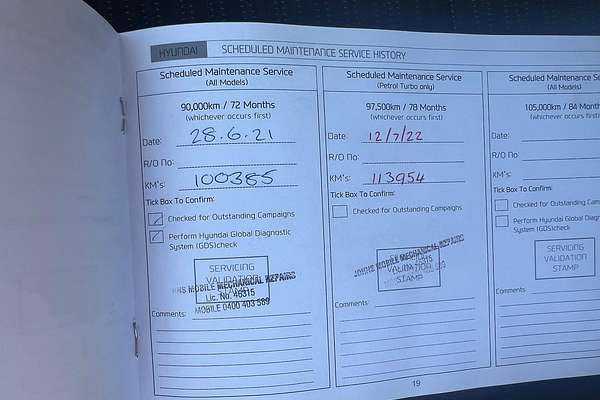 HYUNDAI SCHEDULED MAINTENANCE SERVICE HISTORY
Scheduled Maintenance Service
(All Models)
90,000km / 72 Months
(whichever occurs first)
Date: 28.6.21
R/O No:
KM's: 100385
Tick Box To Confirm:
Checked for Outstanding Campaigns
Perform Hyundai Global Diagnostic
System (GDS)check
SERVICING
VALIDATION
STAMP
MOBILE MECHANICAL REPAIRS
Lic. No. 46315
MOBILE 0400 403 589
Comments:
Scheduled Maintenance Service
(Petrol Turbo only)
97,500km / 78 Months
(whichever occurs first)
Date: 12/7/22
R/O No:
KM's: 113954
Tick Box To Confirm:
Checked for Outstanding Campaigns
JOHNS MOBILE MECHANICAL REPAIRS
VALIDATION
STAMP
Comments:
19
Scheduled Maintenance Se
(All Models)
105,000km / 84 Month
(whichever occurs first)
Date:
R/O No:
KM's:
Tick Box To Confirm:
Checked for Outstanding Cam
Perform Hyundai Global Diagn
System (GDS)check
SERVICING
VALIDATION
STAMP
Comments